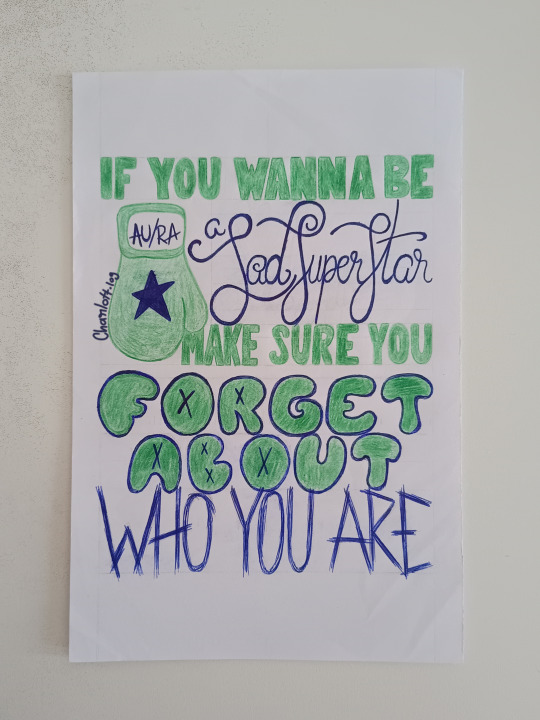 IF YOU WANNA BE
AU/RA
a Sad SuperStar
Charlott.log
MAKE SURE YOU
FORGET
ABOUT
WHO YOU ARE